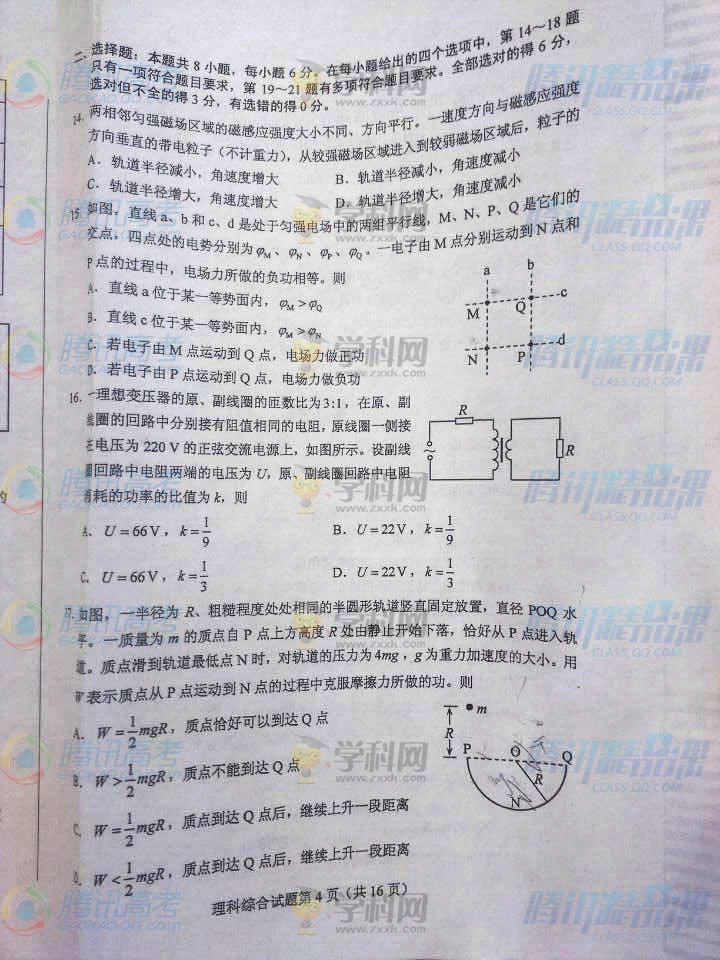 二、选择题：本题共 8 小题，每小题 6 分。在每小题给出的四个选项中，第 14～18 题
只有一项符合题目要求，第 19～21 题有多项符合题目要求。全部选对的得 6 分，
选对但不全的得 3 分，有选错的得 0 分。
14. 两相邻匀强磁场区域的磁感应强度大小不同、方向平行。一速度方向与磁感应强度
方向垂直的带电粒子（不计重力），从较强磁场区域进入到较弱磁场区域后，粒子的
A．轨道半径减小，角速度增大
B．轨道半径减小，角速度减小
C．轨道半径增大，角速度增大
D．轨道半径增大，角速度减小
15. 如图，直线 a、b 和 c、d 是处于匀强电场中的两组平行线，M、N、P、Q 是它们的
交点，四点处的电势分别为 φM、φN、φP、φQ。一电子由 M 点分别运动到 N 点和
P 点的过程中，电场力所做的负功相等。则
A．直线 a 位于某一等势面内，φM > φQ
B．直线 c 位于某一等势面内，φM > φN
C．若电子由 M 点运动到 Q 点，电场力做正功
D．若电子由 P 点运动到 Q 点，电场力做负功
a b
M Q c
N P d
16. 一理想变压器的原、副线圈的匝数比为 3:1，在原、副
线圈的回路中分别接有阻值相同的电阻，原线圈一侧接
在电压为 220 V 的正弦交流电源上，如图所示。设副线
圈回路中电阻两端的电压为 U，原、副线圈回路中电阻
消耗的功率的比值为 k，则
R
~
R
A．U = 66 V，k = 1/9
B．U = 22 V，k = 1/9
C．U = 66 V，k = 1/3
D．U = 22 V，k = 1/3
17. 如图，一半径为 R、粗糙程度处处相同的半圆形轨道竖直固定放置，直径 POQ 水
平。一质量为 m 的质点自 P 点上方高度 R 处由静止开始下落，恰好从 P 点进入轨
道。质点滑到轨道最低点 N 时，对轨道的压力为 4mg，g 为重力加速度的大小。用
W 表示质点从 P 点运动到 N 点的过程中克服摩擦力所做的功。则
A．W = 1/2 mgR，质点恰好可以到达 Q 点
B．W > 1/2 mgR，质点不能到达 Q 点
C．W = 1/2 mgR，质点到达 Q 点后，继续上升一段距离
D．W < 1/2 mgR，质点到达 Q 点后，继续上升一段距离
m
R
P O Q
R
N
理科综合试题第 4 页（共 16 页）
腾讯高考
GAOKAO.QQ.COM
学科网
www.zxxk.com
腾讯精品课
CLASS.QQ.COM